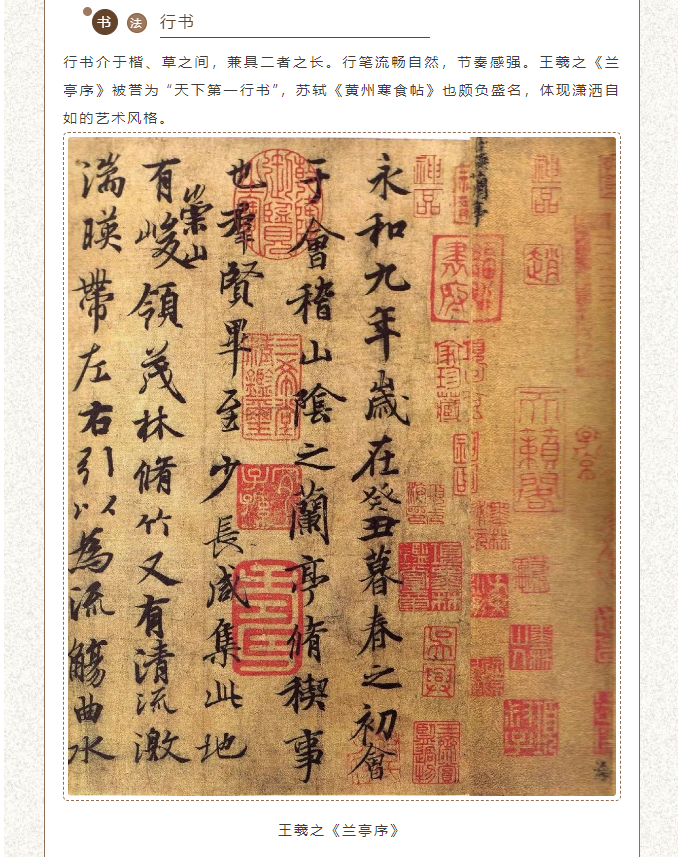 书 法 行书
行书介于楷、草之间，兼具二者之长。行笔流畅自然，节奏感强。王羲之《兰
亭序》被誉为“天下第一行书”，苏轼《黄州寒食帖》也颇负盛名，体现潇洒自
如的艺术风格。
永和九年歲在癸丑暮春之初會
于會稽山陰之蘭亭脩稧事
也羣賢畢至少長咸集此地
有崇山峻領茂林脩竹又有清流激
湍暎帶左右引以為流觴曲水
王羲之《兰亭序》